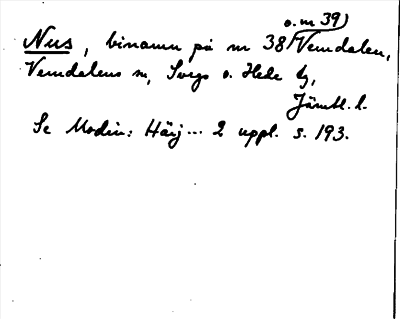 o. nr 39)
Nus, binamn på nr 38 Vemdalen,
Vemdalens sn, Svegs o. Hede tg,
Jämtl. l.
Se Modin: Härj... 2 uppl. s. 193.